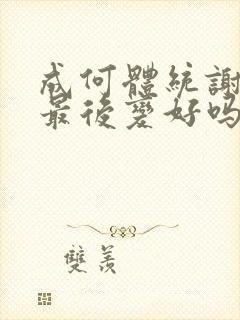 成何體統謝
最後變好嗎
雙羨